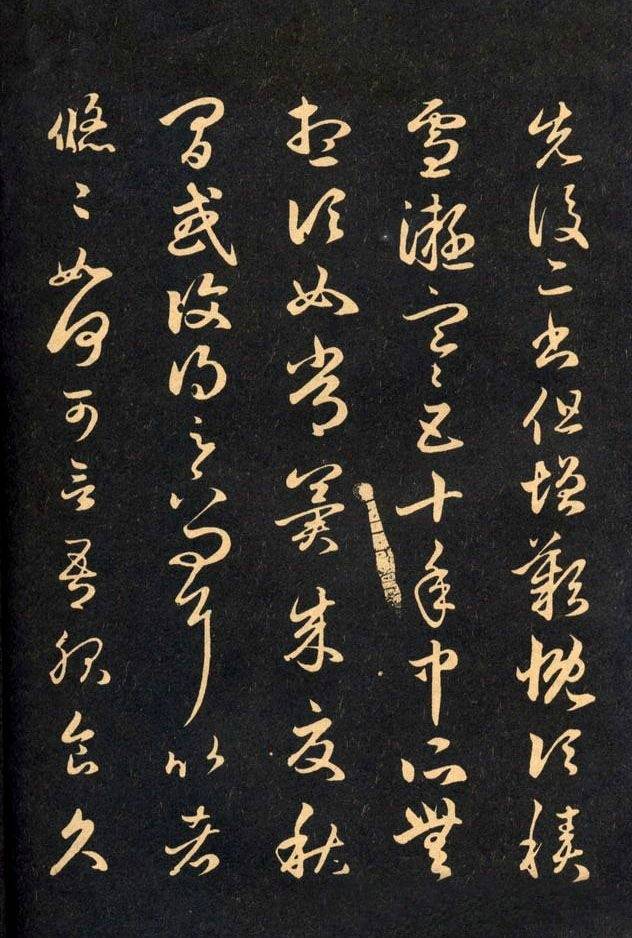 先後二書但增歎慨頃積
雪凝寒五十年中所無
想頃如常冀來夏秋
間或復得足下問耳比者
悠〻如何可言吾服食久